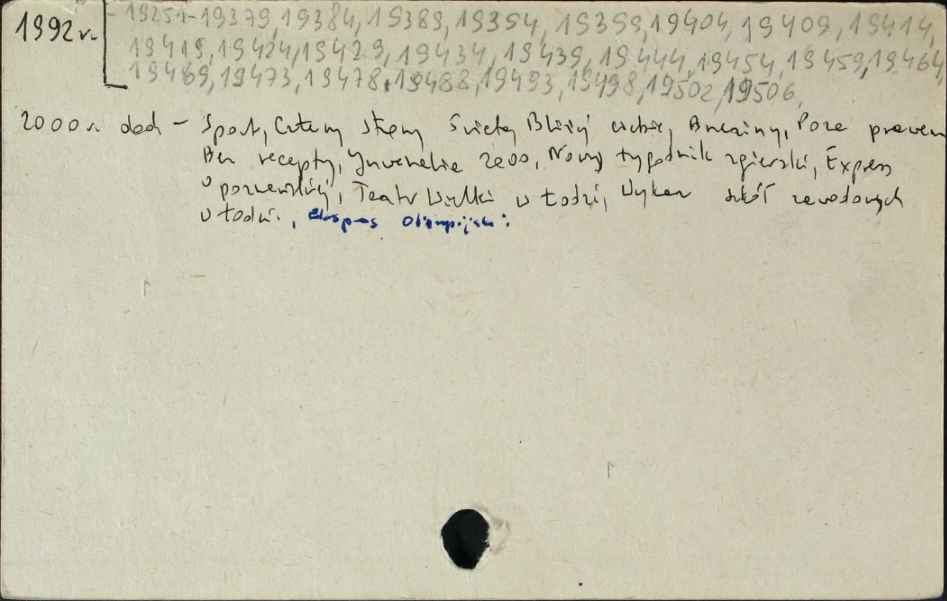 1992 r. - 19251-19379, 19384, 19389, 19394, 19399, 19404, 19409, 19414,
19419, 19424, 19429, 19434, 19439, 19444, 19454, 19459, 19464
19469, 19473, 19478, 19488, 19493, 19498, 19502, 19506,
2000 r. dod - Sport, Cztery strony Świata, Bliżej ciebie, Poza prawem
Bez recepty, Juvenalia 2000, Nowy tygodnik zgierski, Express
poznański, Teatr Wielki w Łodzi, Wykaz szkół zawodowych
w Łodzi, Ekspres Olimpijski